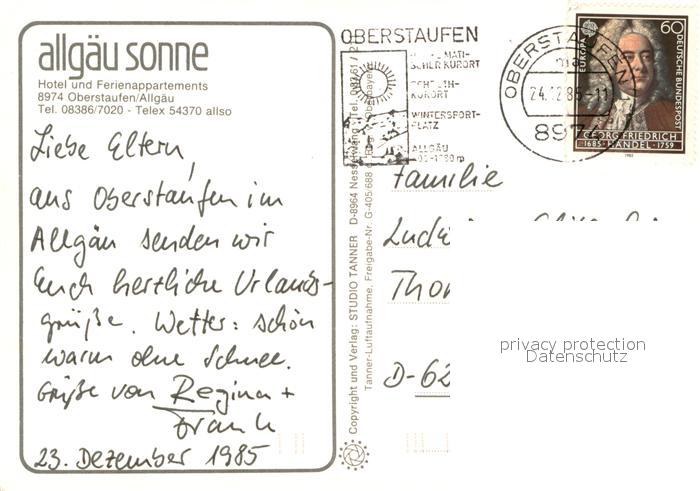 allgäu sonne
Hotel und Ferienappartements
8974 Oberstaufen/Allgäu
Tel. 08386/7020 - Telex 54370 allso
Liebe Eltern,
aus Oberstaufen im
Allgäu senden wir
Euch herzliche Urlaubs-
grüße. Wetter: schön
warm ohne Schnee.
Grüße von Regina +
Frank
23. Dezember 1985
Copyright und Verlag: STUDIO TANNER D-8964 Nesselwang, Tel. 08361/
Tanner-Luftaufnahme, Freigabe-Nr. G-405/688
OBERSTAUFEN
SCHER KURORT
SCHROTH-
KURORT
WINTERSPORT-
PLATZ
ALLGÄU
OBERSTAUFEN
24.12.85-11
897
EUROPA
60
DEUTSCHE BUNDESPOST
GEORG FRIEDRICH
1685 · HÄNDEL · 1759
1985
Familie
Thor
D-62
privacy protection
Datenschutz